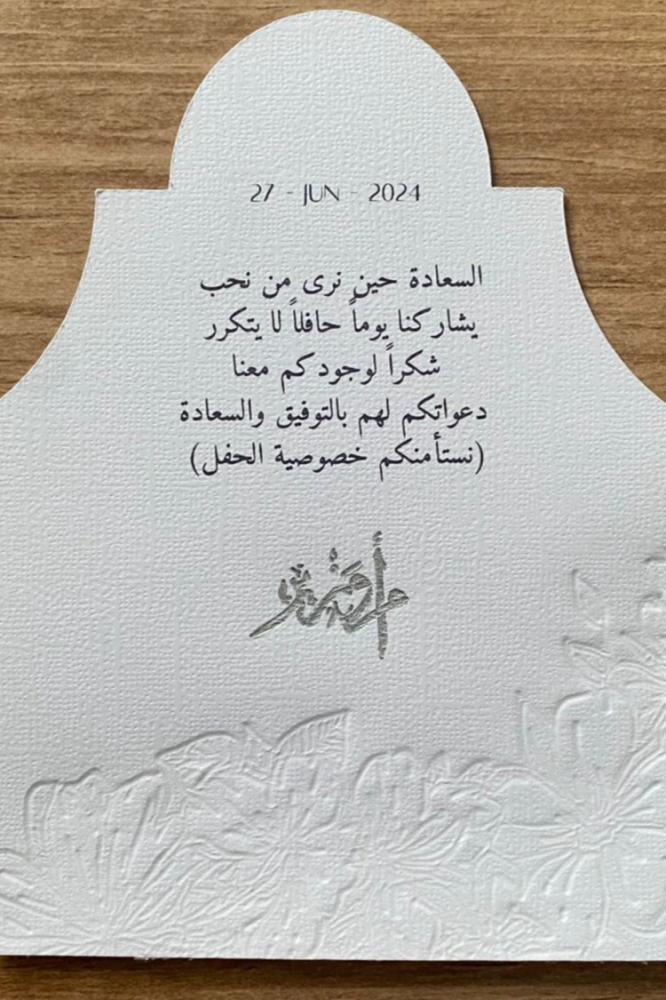 27 - JUN - 2024
السعادة حين نرى من نحب
يشاركنا يوماً حافلاً لا يتكرر
شكراً لوجودكم معنا
دعواتكم لهم بالتوفيق والسعادة
(نستأمنكم خصوصية الحفل)